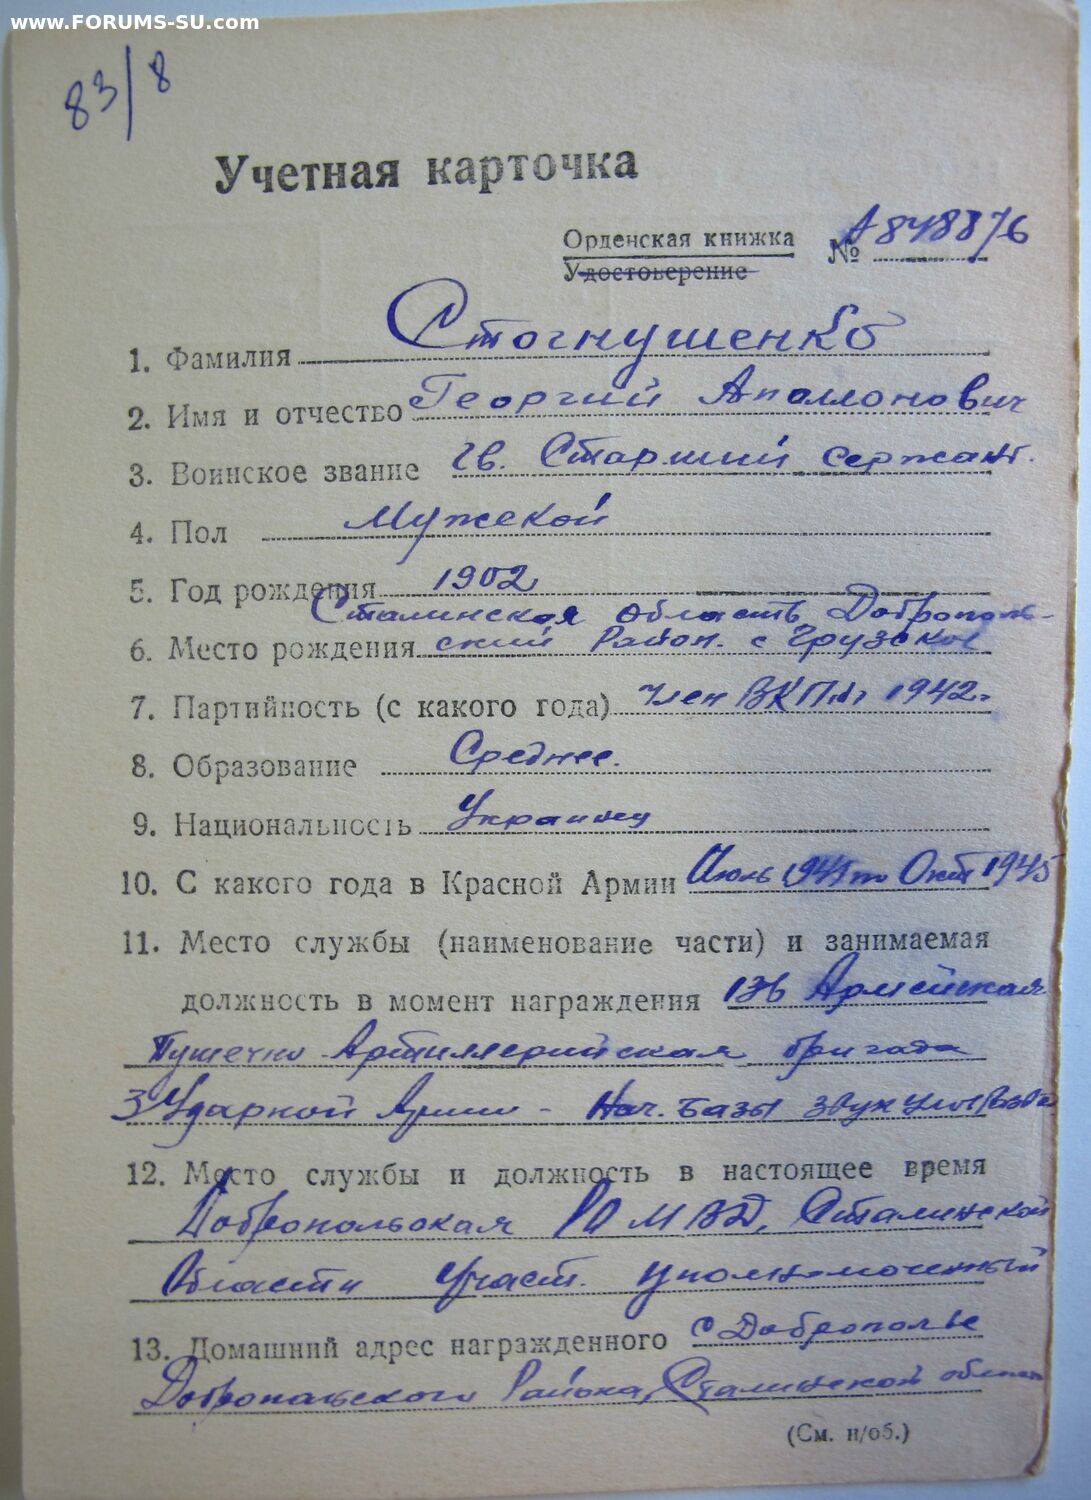 www.FORUMS-SU.com
83/8
Учетная карточка
Орденская книжка № А 848876
Удостоверение
1. Фамилия Стогнушенко
2. Имя и отчество Георгий Аполлонович
3. Воинское звание гв. Старший сержант.
4. Пол Мужской
5. Год рождения 1902
Сталинская область Доброполь-
6. Место рождения ский Район. с Грузское
7. Партийность (с какого года) Член ВКП/б/ 1942г
8. Образование Среднее.
9. Национальность Украинец
10. С какого года в Красной Армии 1941 по Окт 1945
11. Место службы (наименование части) и занимаемая
должность в момент награждения 136 Армейская
Пушечно-Артиллерийская бригада
3 Ударной Армии - Нач. базы звук
12. Место службы и должность в настоящее время
Добропольская РО МВД, Сталинской
Области Участ. уполномоченный
13. Домашний адрес награжденного с Доброполье
Добропольского Района, Сталинской области
(См. н/об.)